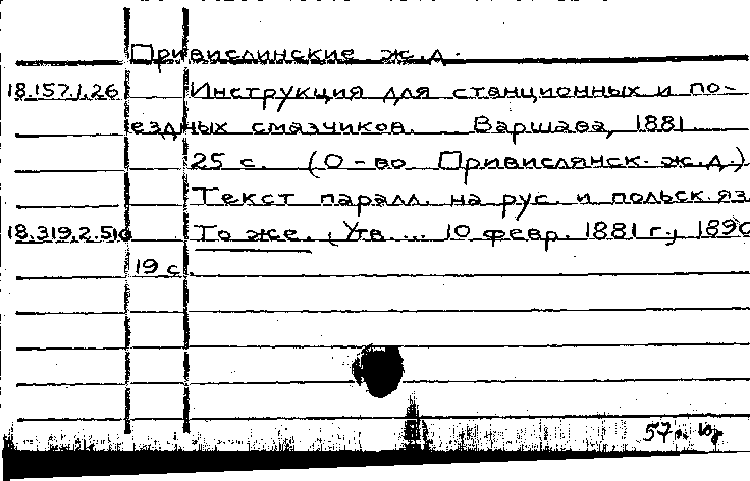 Привислинские ж.д.
18.157.1.26 Инструкция для станционных и по-
ездных смазчиков. Варшава, 1881
25 с. (О-во Привислянск. ж.д.)
Текст паралл. на рус. и польск. яз
18.319.2.51 То же. (Утв. ... 10 февр. 1881 г., 1890
19 с.